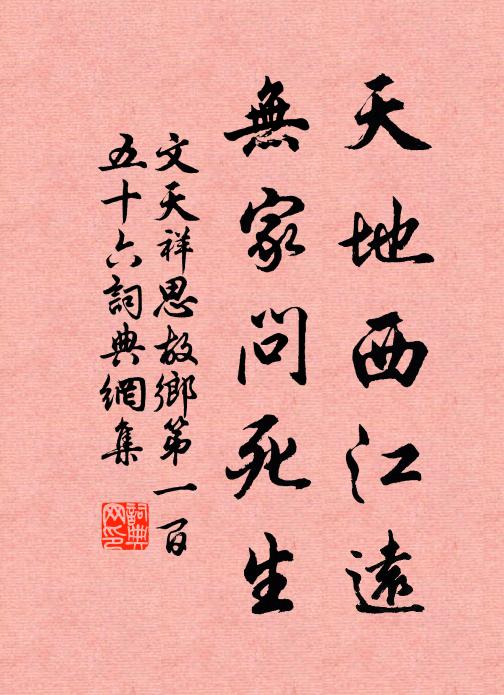 天地西江遠
無家問死生
文天祥思故鄉第一百
五十六詞典網集
詞典
网印